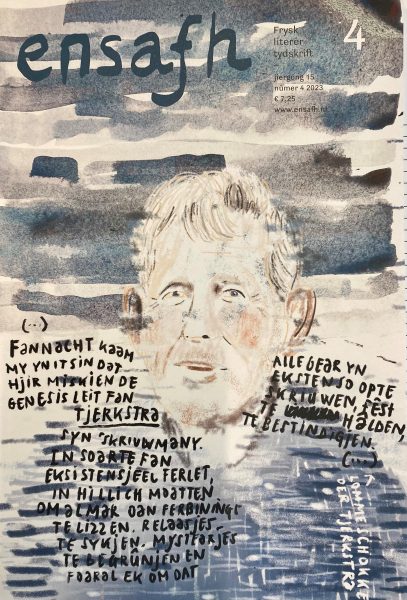 ensafh
Frysk
literer
tydskrift
4
jiergong 15
nûmer 4 2023
€ 7,25
www.ensafh.nl
(...)
FANNACHT KAAM
MY YN 'T SIN DAT
HJIR MISKIEN DE
GENESIS LEIT FAN
TJERKSTRA
SYN 'SKRIUWMANY.
IN SOARTE FAN
EKSISTENSJEEL FERLET,
IN HILLICH MOATTEN
OM ALMAR OAN FERBININGS
TE LIZZEN, RELAASJES
TE SYKJEN, MYSTEARJES
TE BEGRÛNJEN EN
FOARAL EK OM DAT
ALLEGEAR YN
EKSTENSO OP TE
SKRIUWEN, FÊST
TE HÂLDEN,
TE BESTINDIGJEN.
(...)